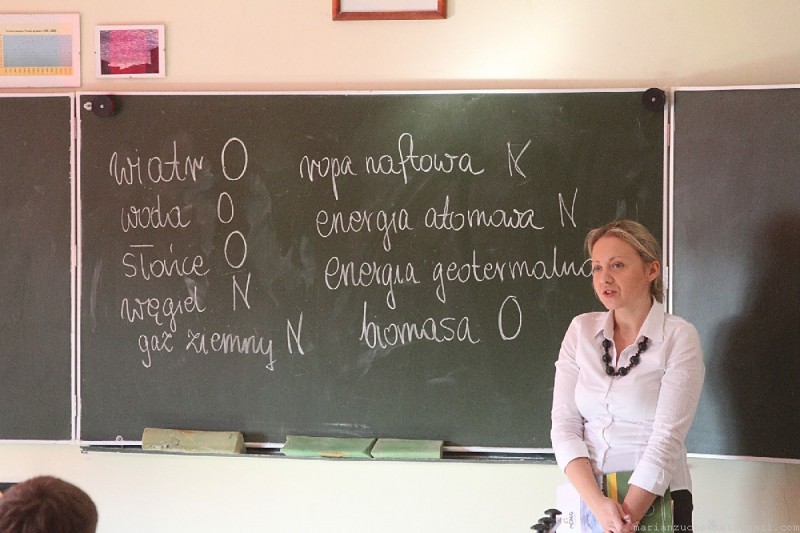 wiatr O
woda O
słońce O
węgiel N
gaz ziemny N
ropa naftowa N
energia atomowa N
energia geotermalna
biomasa O